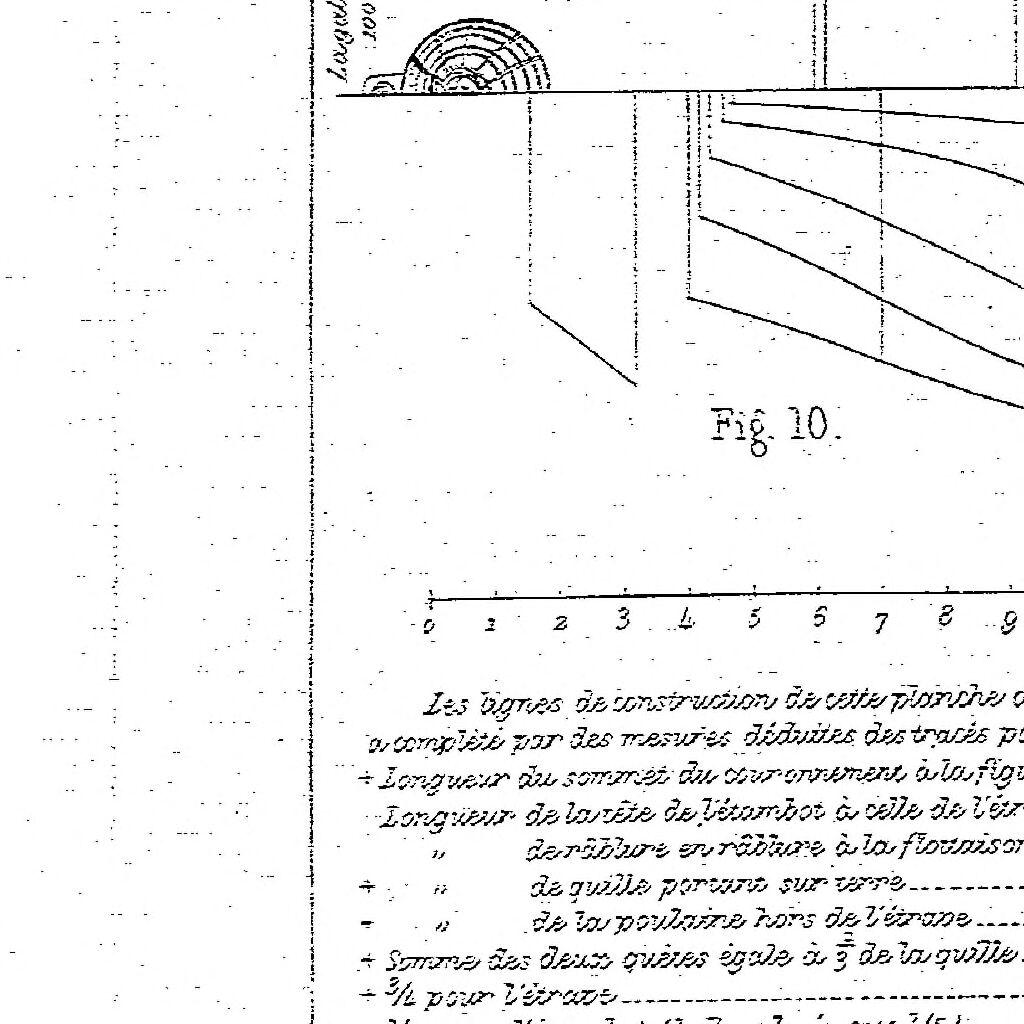 Fig. 10.
0 1 2 3 4 5 6 7 8 9
Les lignes de construction de cette planche
a complété par des mesures déduites des tracés
+ Longueur du sommet du couronnement à la
Longueur de la tête de l'étambot à celle de
„ de râblure en râblure à la flottaison
+ „ de quille portant sur terre
- „ de la poulaine hors de l'étrave
+ Somme des deux quêtes égale à 2/3 de la quille
+ 3/4 pour l'étrave